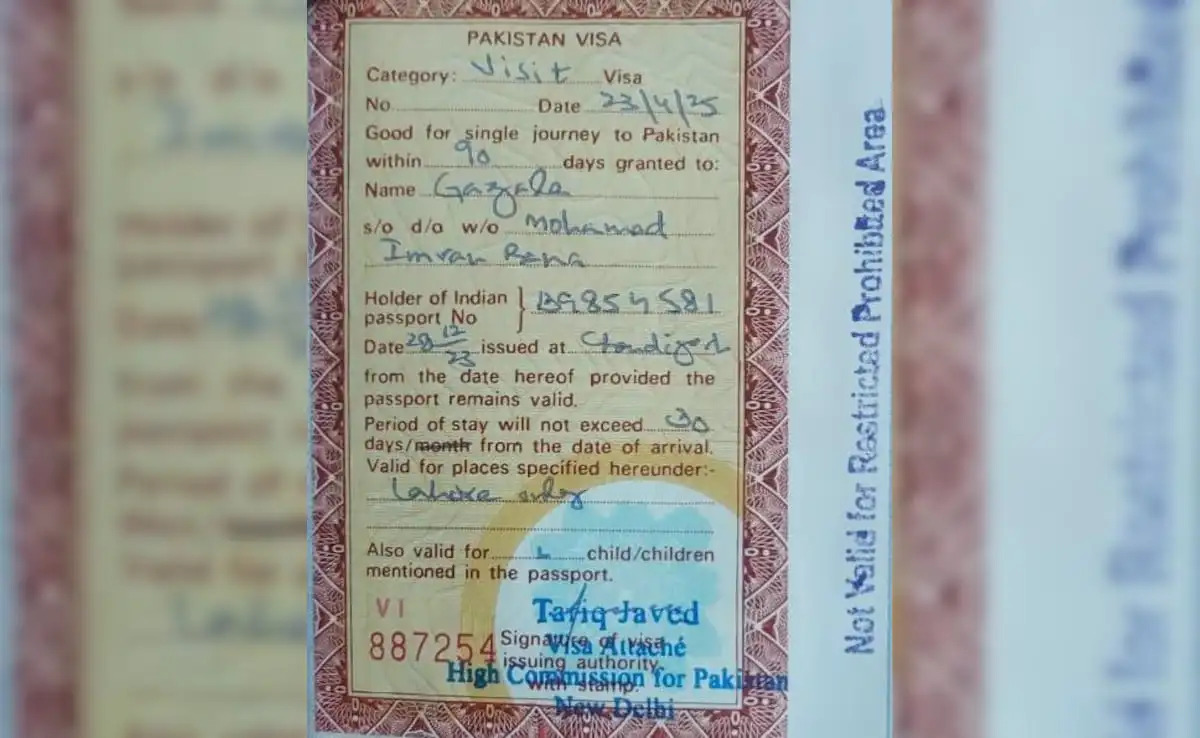 PAKISTAN VISA
Category: Visit Visa
No. Date 23/4/25
Good for single journey to Pakistan
within 90 days granted to:
Name Gazala
s/o d/o w/o Mohamad
Imran Rana
Holder of Indian } B9854581
passport No
Date 28 12/23 issued at Chandigarh
from the date hereof provided the
passport remains valid.
Period of stay will not exceed 30
days/month from the date of arrival.
Valid for places specified hereunder:-
Lahore only
Also valid for child/children
mentioned in the passport.
VI
887254
Signature of visa
issuing authority.
with stamp.
Tafiq Javed
Visa Attaché
High Commission for Pakistan
New Delhi
Not Valid for Restricted Prohibited Area